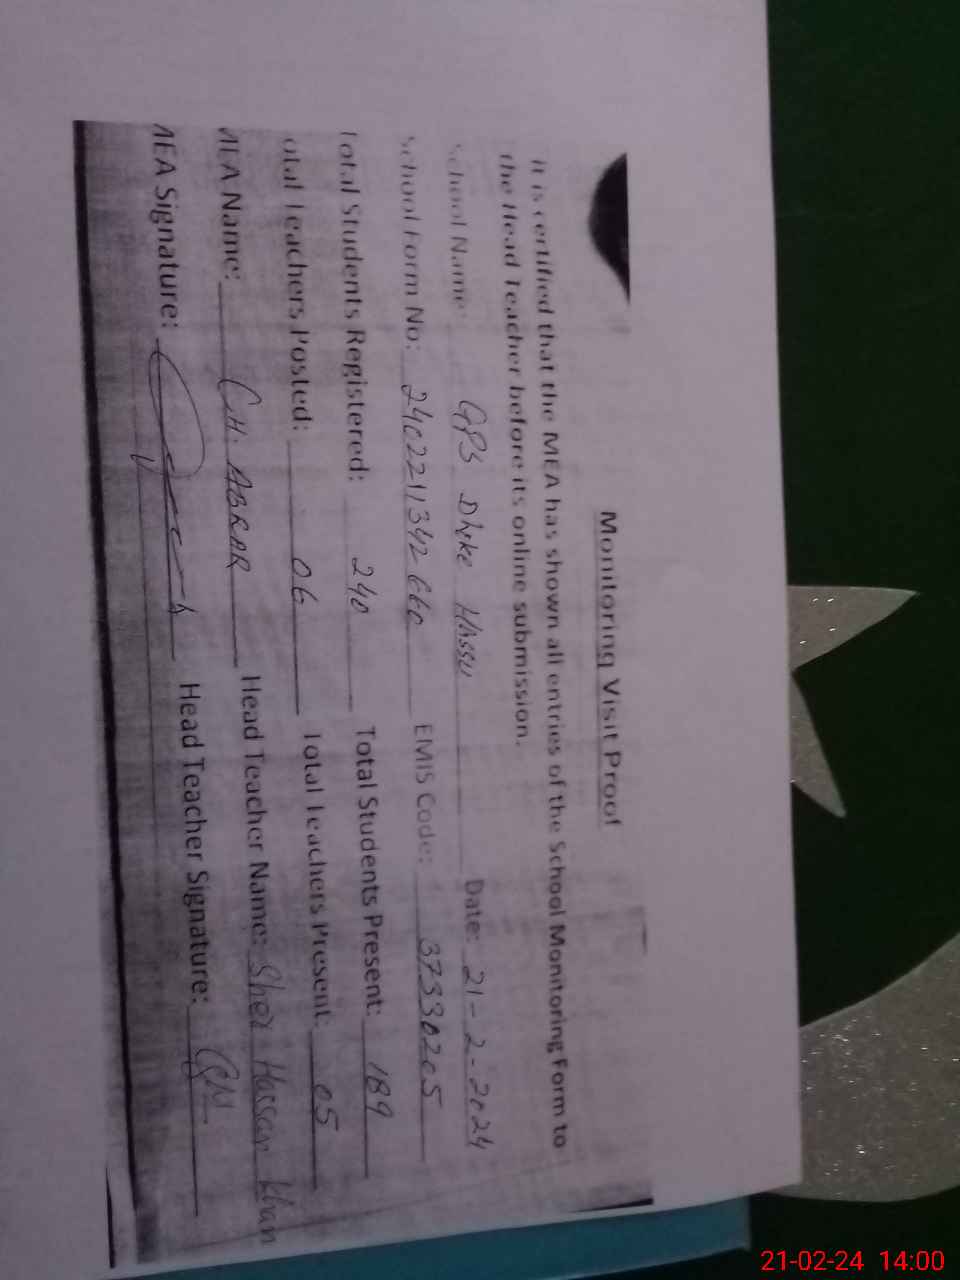 Monitoring Visit Proof
It is certified that the MEA has shown all entries of the School Monitoring Form to
the Head Teacher before its online submission.
School Name: GPS Dhke Hassu Date: 21-2-2024
School Form No: 2402211342660 EMIS Code: 37330205
Total Students Registered: 240 Total Students Present: 189
Total Teachers Posted: 06 Total Teachers Present: 05
MEA Name: CH. ABRAR Head Teacher Name: Sher Hassan Khan
MEA Signature: Head Teacher Signature:
21-02-24 14:00